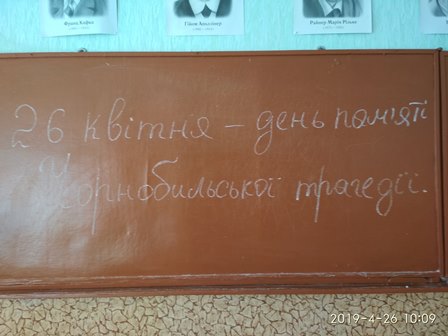 Франц Кафка
Гійом Аполлінер
Райнер Марія Рільке
26 квітня – день пам'яті
Чорнобильської трагедії.
2019-4-26 10:09